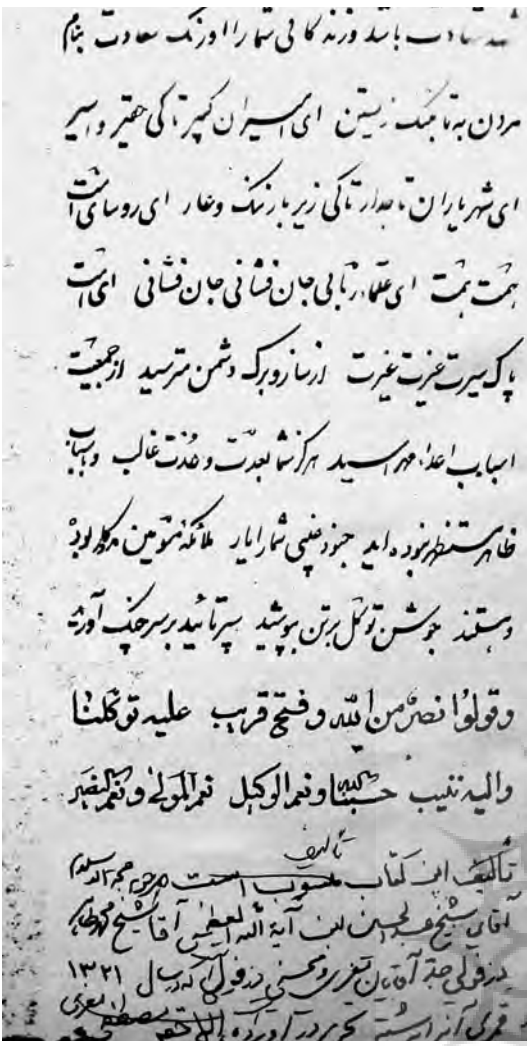 شهد شهادت باشد و زندگانی شما را اورنگ سعادت بنام
مردن به تا بننگ زیستن ای اسیران کمپر تا کی حقیر و اسیر
ای شهریاران تاجدار تا کی زیر بار ننگ و عار ای روسای امت
همت همت ای علماء ربانی جان فشانی جان فشانی ای امت
پاک سیرت غیرت غیرت از ساز و برگ دشمن مترسید از جمعیت
اسباب اعداء مهراسید هرگز شما بعدت و عُدت غالب و باسباب
ظاهر مستظهر نبوده اید جنود غیبی شما را یار ملائکه مسومین مددکار بوده
و هستند جوشن توکل بر تن بپوشید سپر تائید بر سر چنگ آورید
وقولوا نصر من الله و فتح قریب علیه توکلنا
والیه ننیب حسبنا الله ونعم الوکیل نعم المولی ونعم النصیر
تألیف
تألیف این کتاب منسوب است مرحوم حجة الاسلام
آقای شیخ عبدالحسین ابن آیة الله العظمی آقا شیخ محمد طاهر
دزفولی جد آقایان معزی و محسنی دزفولی که در سال ۱۳۲۱
قمری آنرا برشته تحریر در آورده اند الاحقر مصطفی معزی